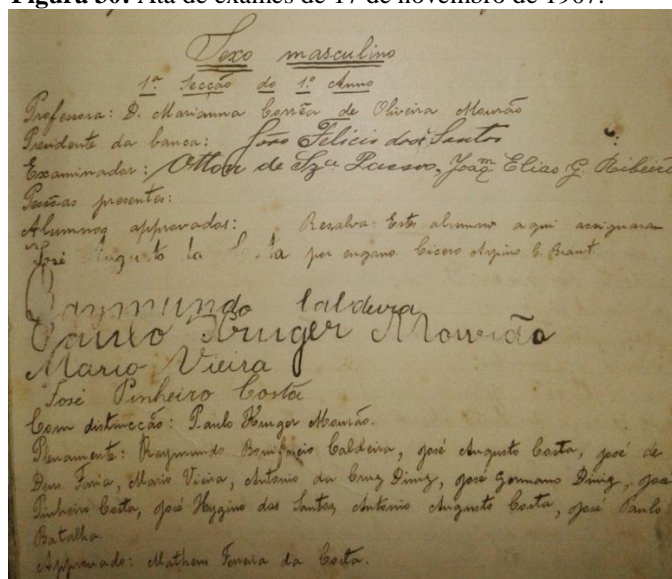 Figura 50: Ata de exames de 17 de novembro de 1907.
Sexo masculino
1ª Secção do 1º Anno
Professora: D. Marianna Corrêa de Oliveira Mourão
Presidente da banca: João Felicio dos Santos
Examinador: Otton de Sza Passos, Joaqm Elias G. Ribeiro
Pessoas presentes:
Alumnos approvados: Resalva: Este alumno aqui assignaram
José Augusto da por engano. Cicero Arpino C. Brant.
Raymundo Caldeira
Paulo Kruger Mourão
Mario Vieira
José Pinheiro Costa
Com distincção: Paulo Kruger Mourão.
Plenamente: Raymundo Bonifacio Caldeira, José Augusto Costa, José de
Deus Faria, Mario Vieira, Antonio da Cruz Diniz, José Germano Diniz, José
Pinheiro Costa, José Hygino dos Santos, Antonio Augusto Costa, José Paulo
Batalha.
Approvado: Matheus Ferreira da Costa.